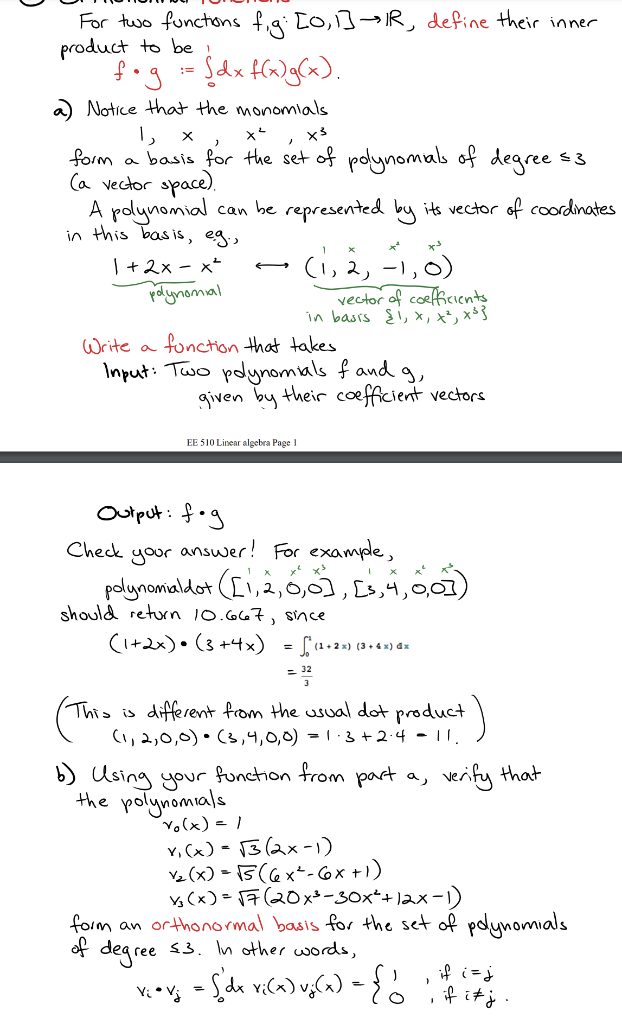 For two functions f,g: [0,1]→ℝ, define their inner
product to be
f • g := ∫₀¹dx f(x)g(x).
a) Notice that the monomials
1, x, x², x³
form a basis for the set of polynomials of degree ≤3
(a vector space).
A polynomial can be represented by its vector of coordinates
in this basis, eg.,
1 x x² x³
1 + 2x − x² ⟷ (1, 2, −1, 0)
polynomial vector of coefficients
in basis {1, x, x², x³}
Write a function that takes
Input: Two polynomials f and g,
given by their coefficient vectors
EE 510 Linear algebra Page 1
Output: f • g
Check your answer! For example,
1 x x² x³ 1 x x² x³
polynomialdot([1,2,0,0], [3,4,0,0])
should return 10.667, since
(1+2x) • (3+4x) = ∫₀¹ (1 + 2 x) (3 + 4 x) dx
= 32/3
(This is different from the usual dot product
(1,2,0,0) • (3,4,0,0) = 1·3 + 2·4 = 11.)
b) Using your function from part a, verify that
the polynomials
v₀(x) = 1
v₁(x) = √3(2x−1)
v₂(x) = √5(6x²−6x+1)
v₃(x) = √7(20x³−30x²+12x−1)
form an orthonormal basis for the set of polynomials
of degree ≤3. In other words,
vᵢ • vⱼ = ∫₀¹dx vᵢ(x) vⱼ(x) = { 1 , if i=j
0 , if i≠j.